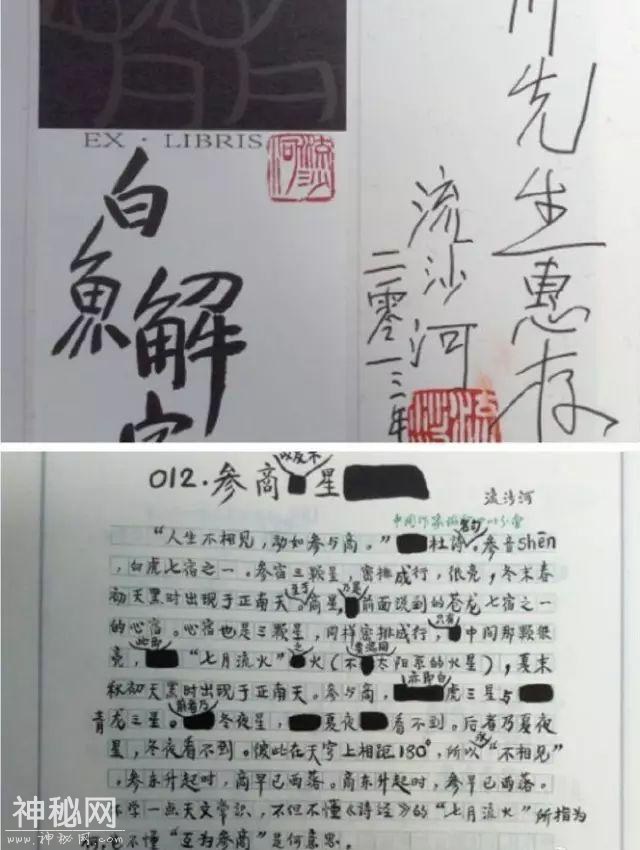 EX · LIBRIS
流沙河
白
魚
解
字
先生惠存
流沙河
二零一三年
流沙河
以及不
012.参商 星
流沙河
"人生不相见,动如参与商。" 杜诗句。参音shēn
,白虎七宿之一。参宿三颗星,密排成行,很亮,冬末春
初天黑时出现于正南天。商星 乃是前面说到的苍龙七宿之一
的心宿。心宿也是三颗星,同样密排成行,只有中间那颗很
亮, 此即"七月流火"之火(不是太阳系的火星),夏末
秋初天黑时出现于正南天。参与商, 亦即白虎三星与
青龙三星。前者乃冬夜星, 夏夜 看不到。后者乃夏夜
星,冬夜看不到。彼此在天宇上相距180°,所以"不相见"
。参东升起时,商早已西落。商东升起时,参早已西落。
学一点天文常识,不但不懂《诗经》的"七月流火"所指为
不懂"互为参商"是何意思。
神秘网
www.神秘网.com